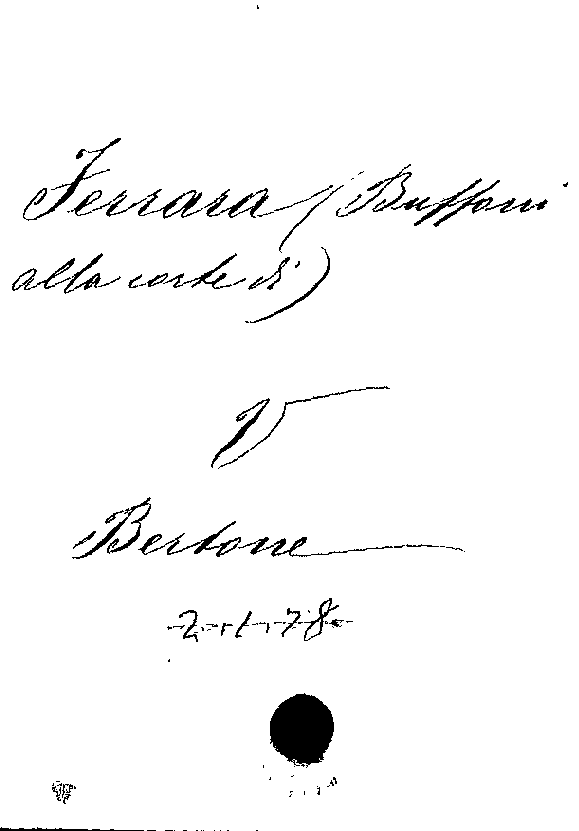 Ferrara (Buffoni
alla corte di)
V
Bertoni
-2.1.78.-